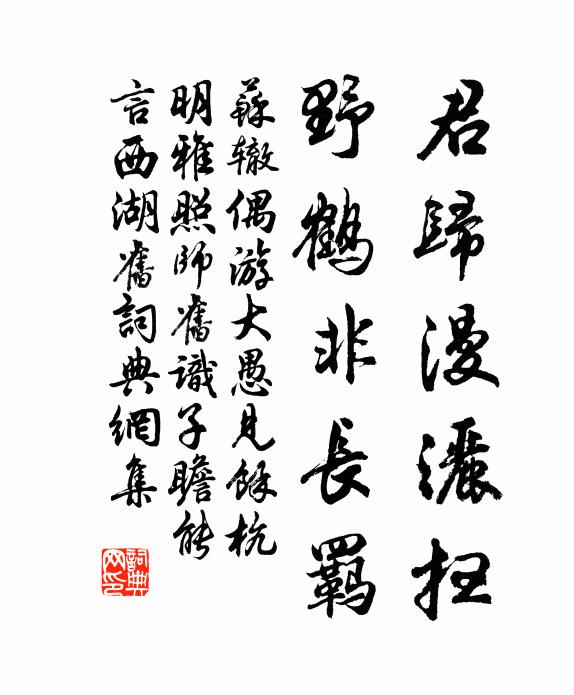 君歸漫灑掃
野鶴非長羈
蘇轍偶游大愚見餘杭
明雅照師舊識子瞻能
言西湖舊詞典網集
詞典網印